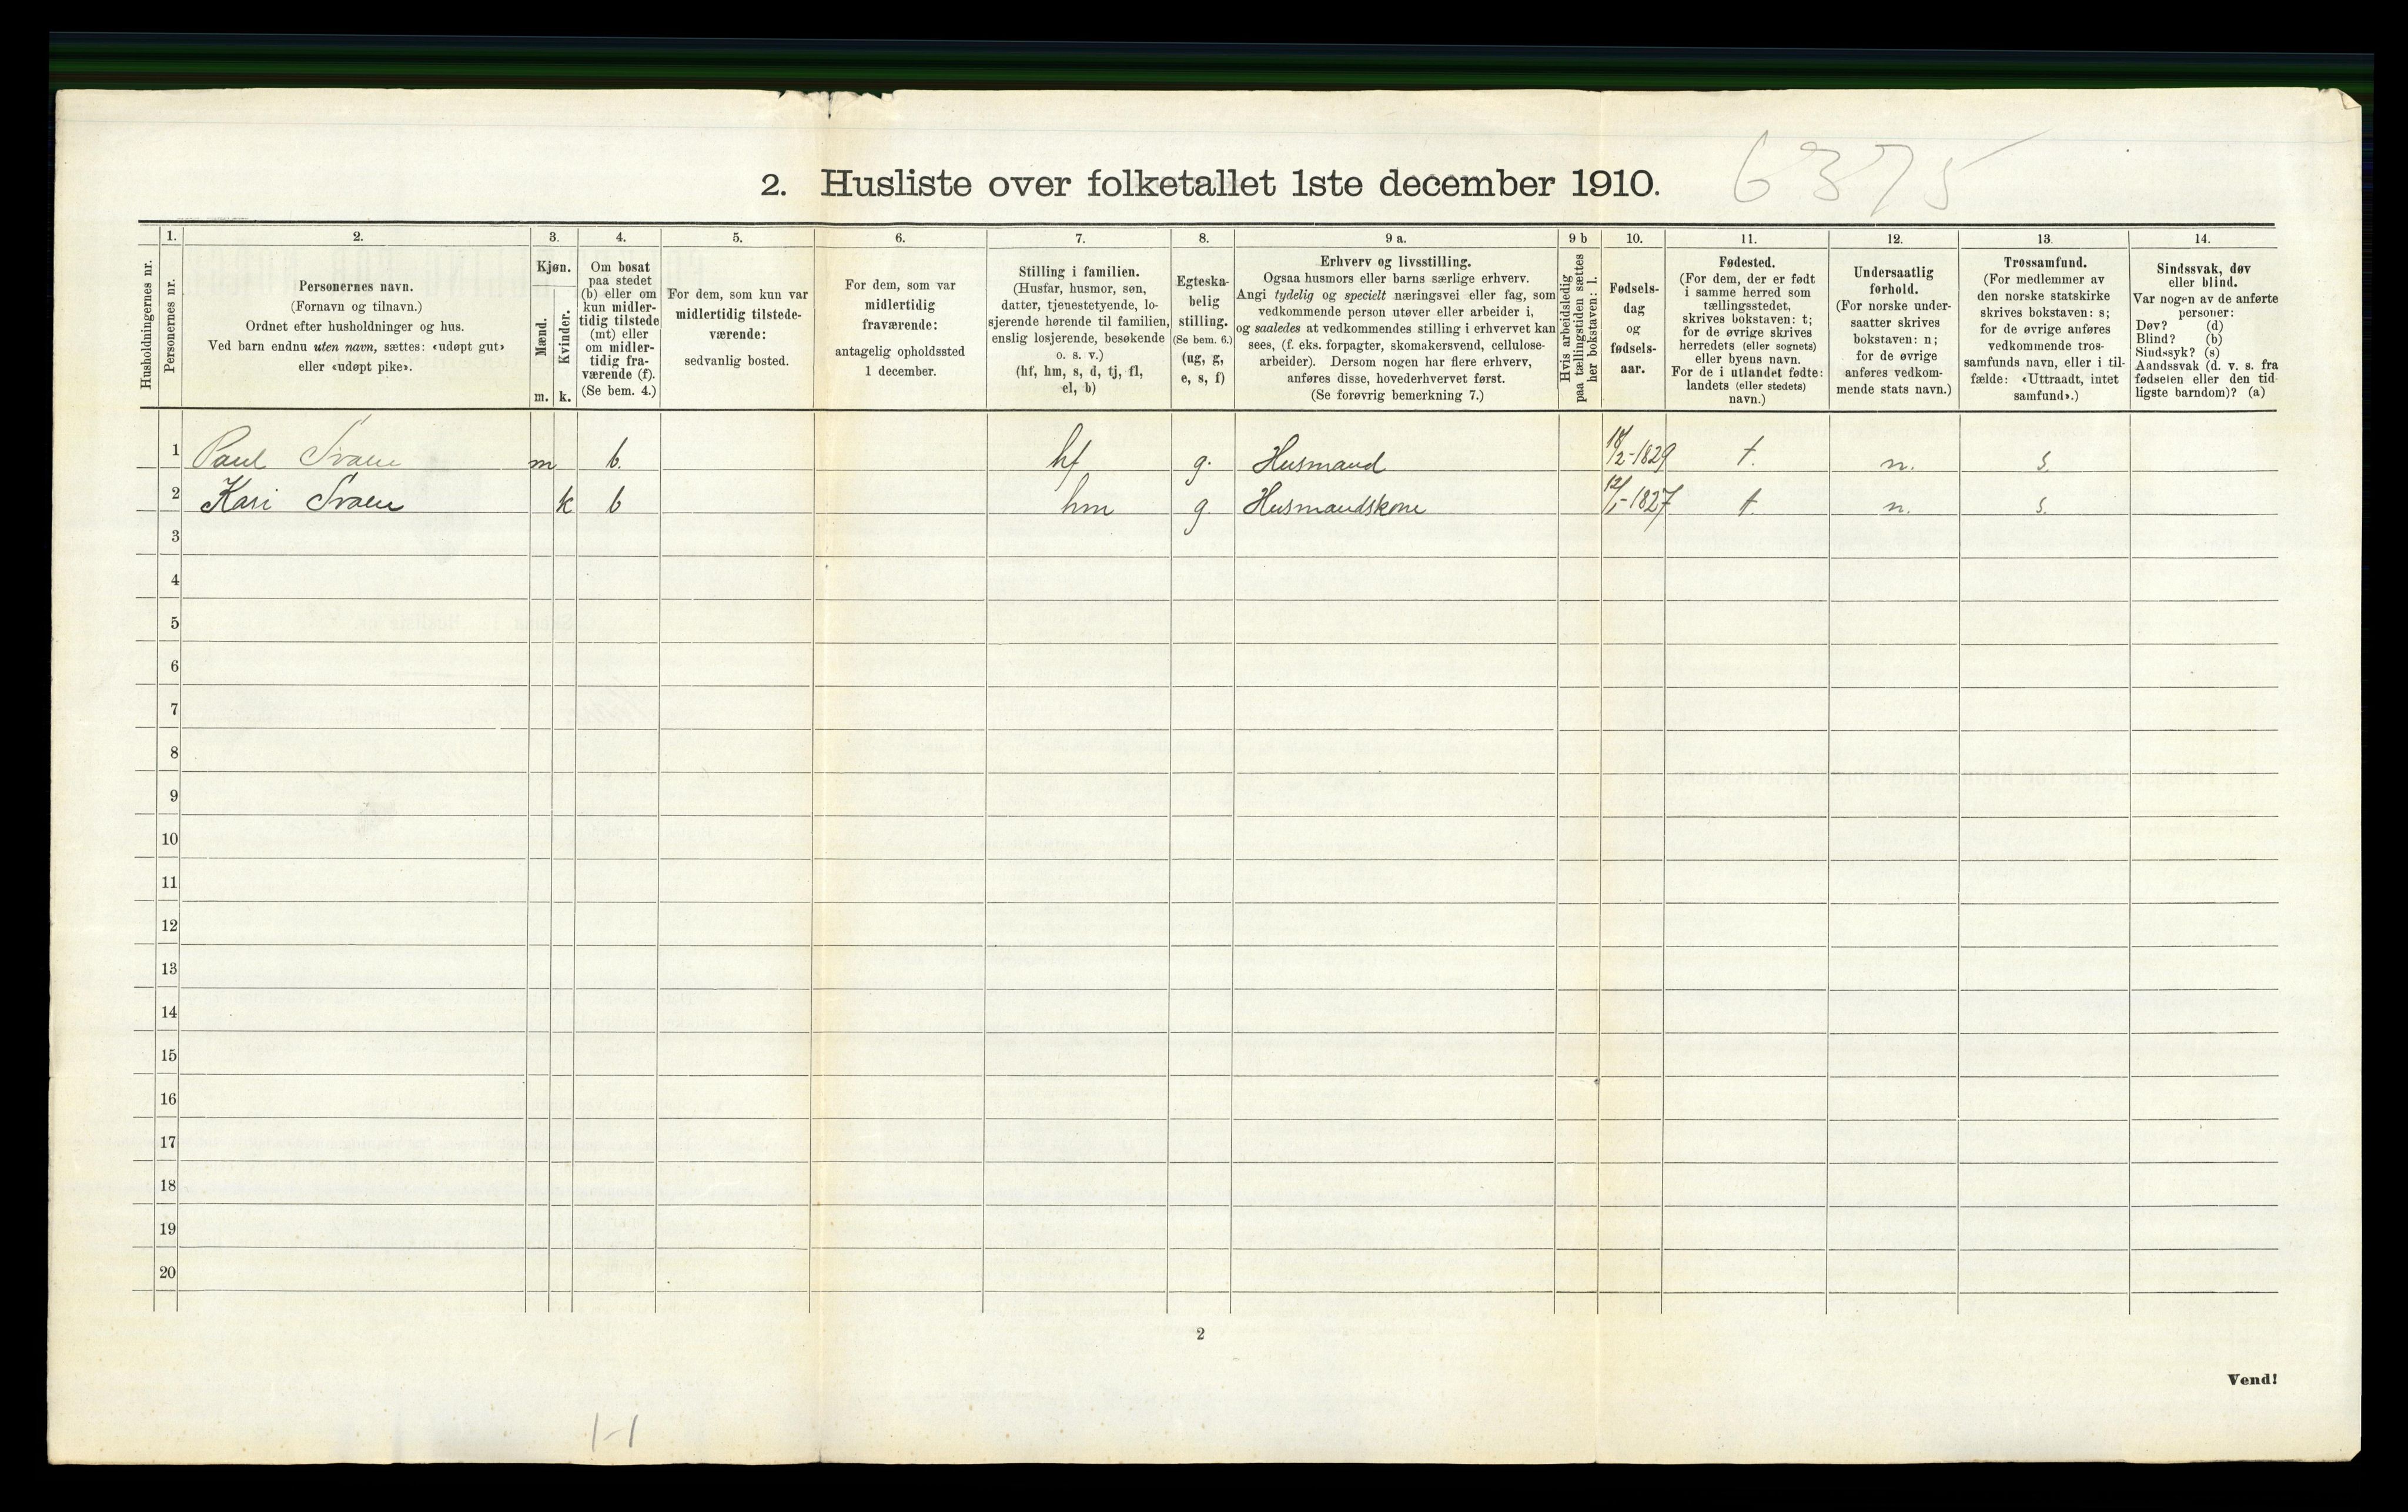 2. Husliste over folketallet 1ste december 1910.
6375
Husholdningernes nr.
1.
Personernes nr.
2.
Personernes navn.
(Fornavn og tilnavn.)
Ordnet efter husholdninger og hus.
Ved barn endnu uten navn, sættes: «udøpt gut»
eller «udøpt pike».
3.
Kjøn.
Mænd.
Kvinder.
m. k.
4.
Om bosat
paa stedet
(b) eller om
kun midler-
tidig tilstede
(mt) eller
om midler-
tidig fra-
værende (f).
(Se bem. 4.)
5.
For dem, som kun var
midlertidig tilstede-
værende:
sedvanlig bosted.
6.
For dem, som var
midlertidig
fraværende:
antagelig opholdssted
1 december.
7.
Stilling i familien.
(Husfar, husmor, søn,
datter, tjenestetyende, lo-
sjerende hørende til familien,
enslig losjerende, besøkende
o. s. v.)
(hf, hm, s, d, tj, fl,
el, b)
8.
Egteska-
belig
stilling.
(Se bem. 6.)
(ug, g,
e, s, f)
9 a.
Erhverv og livsstilling.
Ogsaa husmors eller barns særlige erhverv.
Angi tydelig og specielt næringsvei eller fag, som
vedkommende person utøver eller arbeider i,
og saaledes at vedkommendes stilling i erhvervet kan
sees, (f. eks. forpagter, skomakersvend, cellulose-
arbeider). Dersom nogen har flere erhverv,
anføres disse, hovederhvervet først.
(Se forøvrig bemerkning 7.)
9 b
Hvis arbeidsledig
paa tællingstiden sættes
her bokstaven: l.
10.
Fødsels-
dag
og
fødsels-
aar.
11.
Fødested.
(For dem, der er født
i samme herred som
tællingsstedet,
skrives bokstaven: t;
for de øvrige skrives
herredets (eller sognets)
eller byens navn.
For de i utlandet fødte:
landets (eller stedets)
navn.)
12.
Undersaatlig
forhold.
(For norske under-
saatter skrives
bokstaven: n;
for de øvrige
anføres vedkom-
mende stats navn.)
13.
Trossamfund.
(For medlemmer av
den norske statskirke
skrives bokstaven: s;
for de øvrige anføres
vedkommende tros-
samfunds navn, eller i til-
fælde: «Uttraadt, intet
samfund».)
14.
Sindssvak, døv
eller blind.
Var nogen av de anførte
personer:
Døv? (d)
Blind? (b)
Sindssyk? (s)
Aandssvak (d. v. s. fra
fødselen eller den tid-
ligste barndom)? (a)
1 Paul Svaen m b. hf g. Husmand 18/2-1829 t. n. s.
2 Kari Svaen k b hm g. Husmandskone 12/1-1827 t. n. s.
3
4
5
6
7
8
9
10
11
12
13
14
15
16
17
18
19
20
2
Vend!
1-1